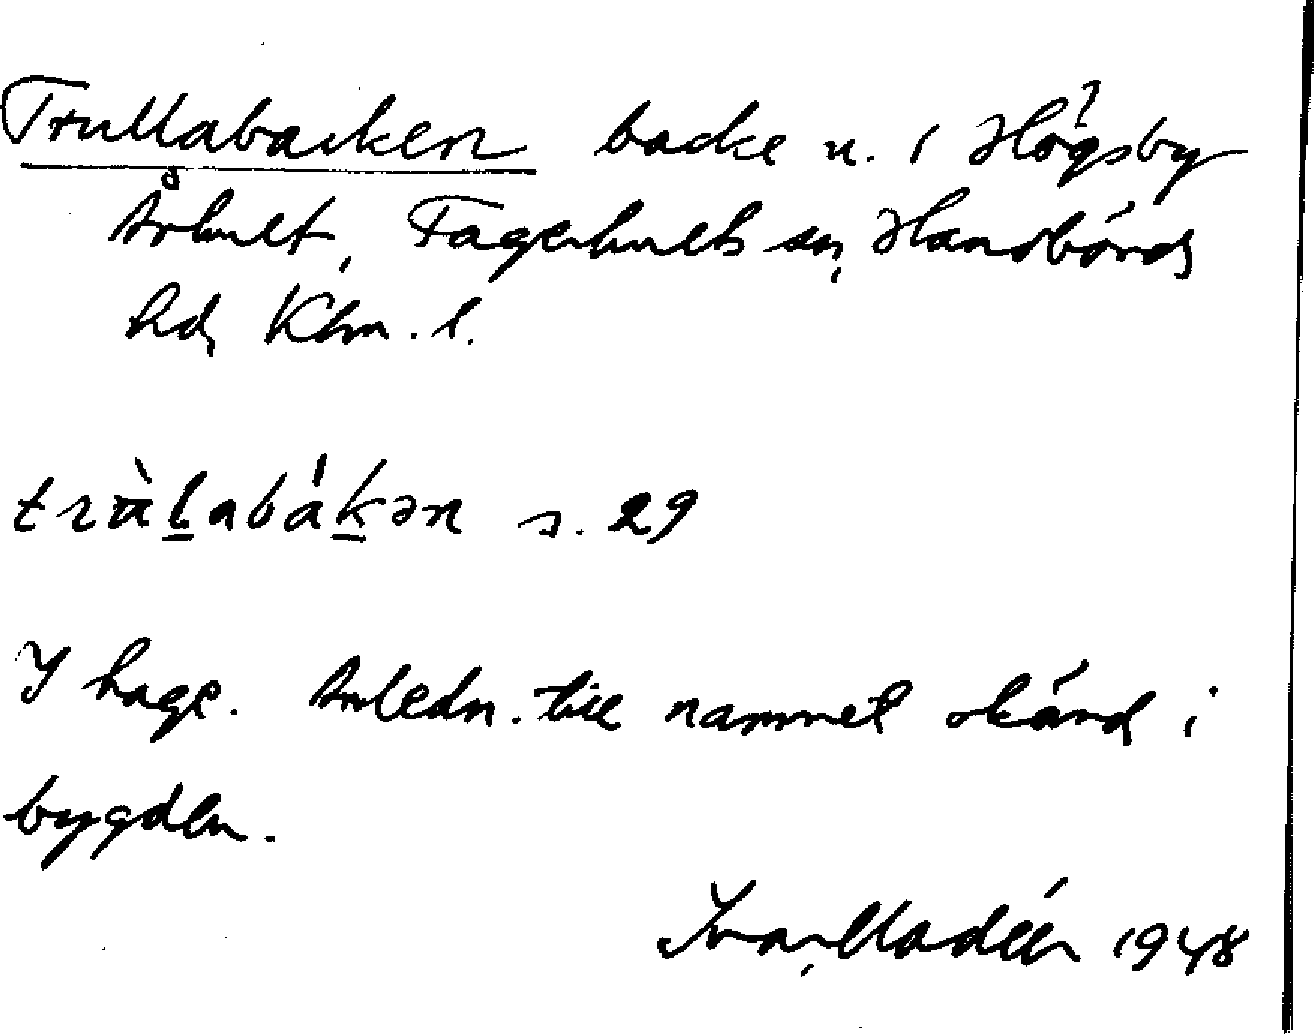 Trullabacken backe n. i Högsby
Århult, Fagerhults sn, Handbörds
hd, Klm. l.
trùlabákən s. 29
I hage. Anledn. till namnet okänd i
bygden.
Ivar Modéer 1948